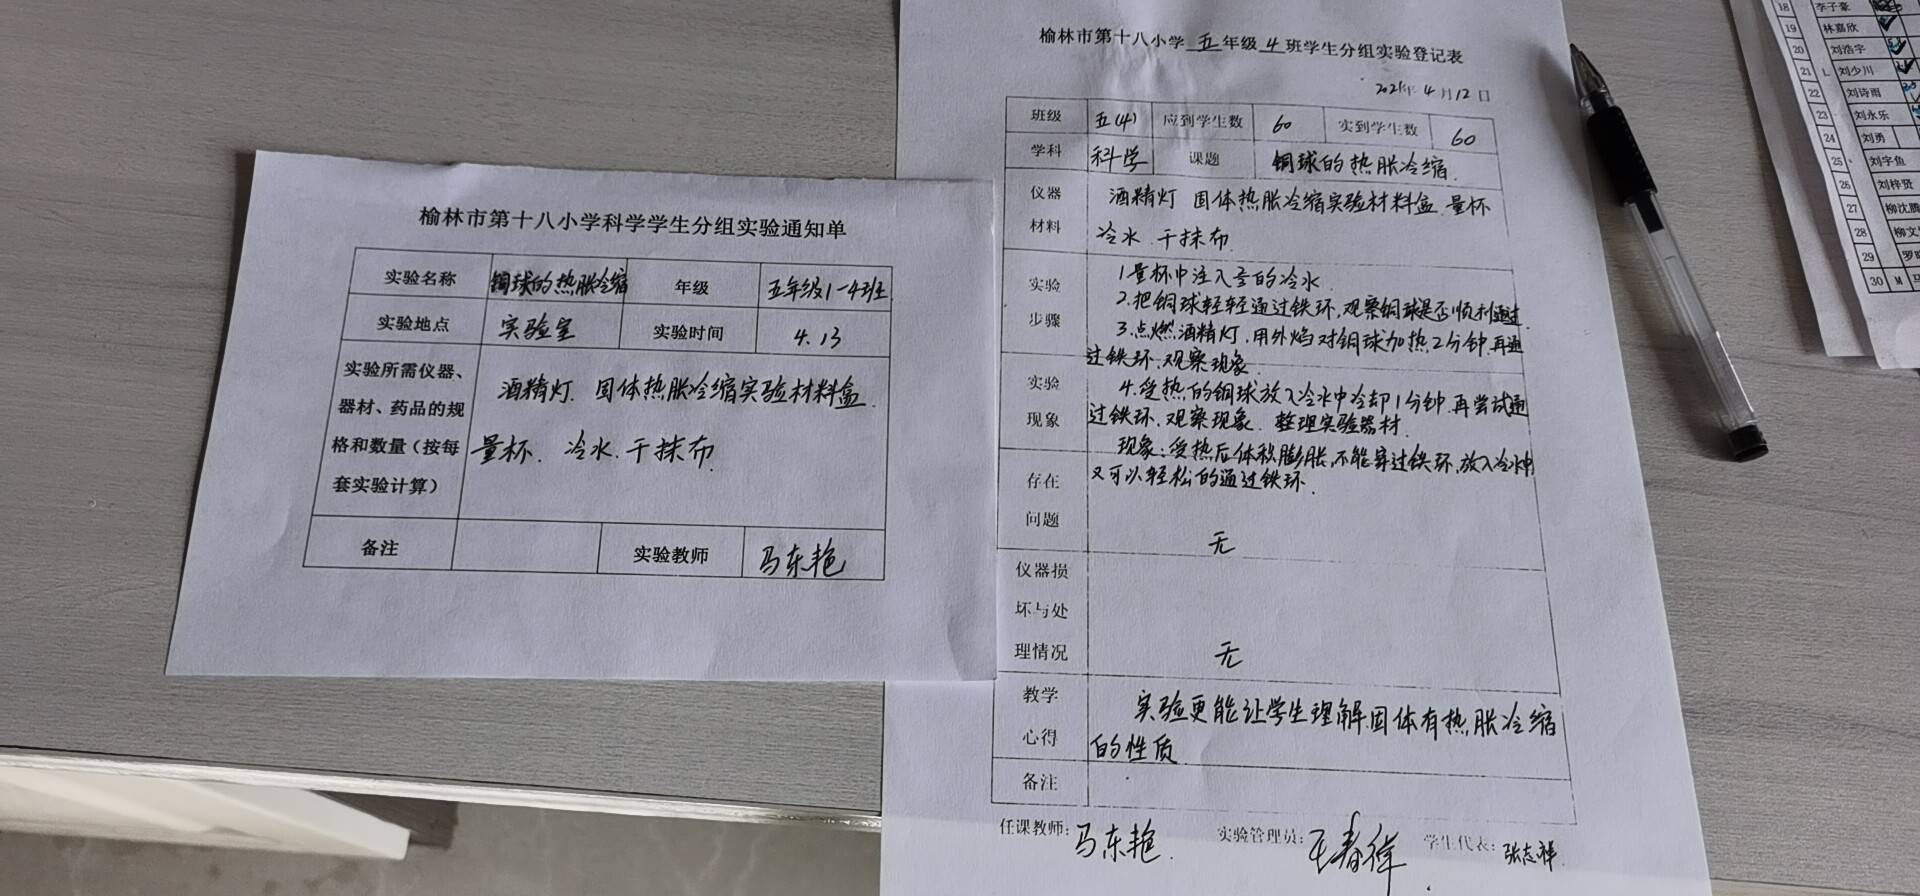 榆林市第十八小学科学学生分组实验通知单
实验名称 铜球的热胀冷缩 年级 五年级1-4班
实验地点 实验室 实验时间 4.13
实验所需仪器、器材、药品的规格和数量（按每套实验计算）
酒精灯. 固体热胀冷缩实验材料盒.
量杯. 冷水. 干抹布.
备注 实验教师 马东艳
榆林市第十八小学 五 年级 4 班学生分组实验登记表
年 4 月 12 日
班级 五(4) 应到学生数 60 实到学生数 60
学科 科学 课题 铜球的热胀冷缩.
仪器材料
酒精灯 固体热胀冷缩实验材料盒 量杯
冷水. 干抹布.
实验步骤
1.量杯中注入 的冷水
2.把铜球轻轻通过铁环,观察铜球是否顺利通过.
3.点燃酒精灯,用外焰对铜球加热2分钟.再通
过铁环.观察现象.
实验现象
4.受热的铜球放入冷水中冷却1分钟.再尝试通
过铁环.观察现象. 整理实验器材.
现象:受热后体积膨胀,不能穿过铁环,放入冷水中
又可以轻松的通过铁环.
存在问题
无
仪器损坏与处理情况
无
教学心得
实验更能让学生理解固体有热胀冷缩
的性质
备注
任课教师: 马东艳. 实验管理员: 学生代表: 张志祥.
18 李子豪
19 林嘉欣
20 刘浩宇
21 L 刘少川
22 刘诗雨
23 刘永乐
24 刘勇
25 刘宇鱼
26 刘梓贤
27 柳沈腾
28 柳文
29 罗
30 M 马